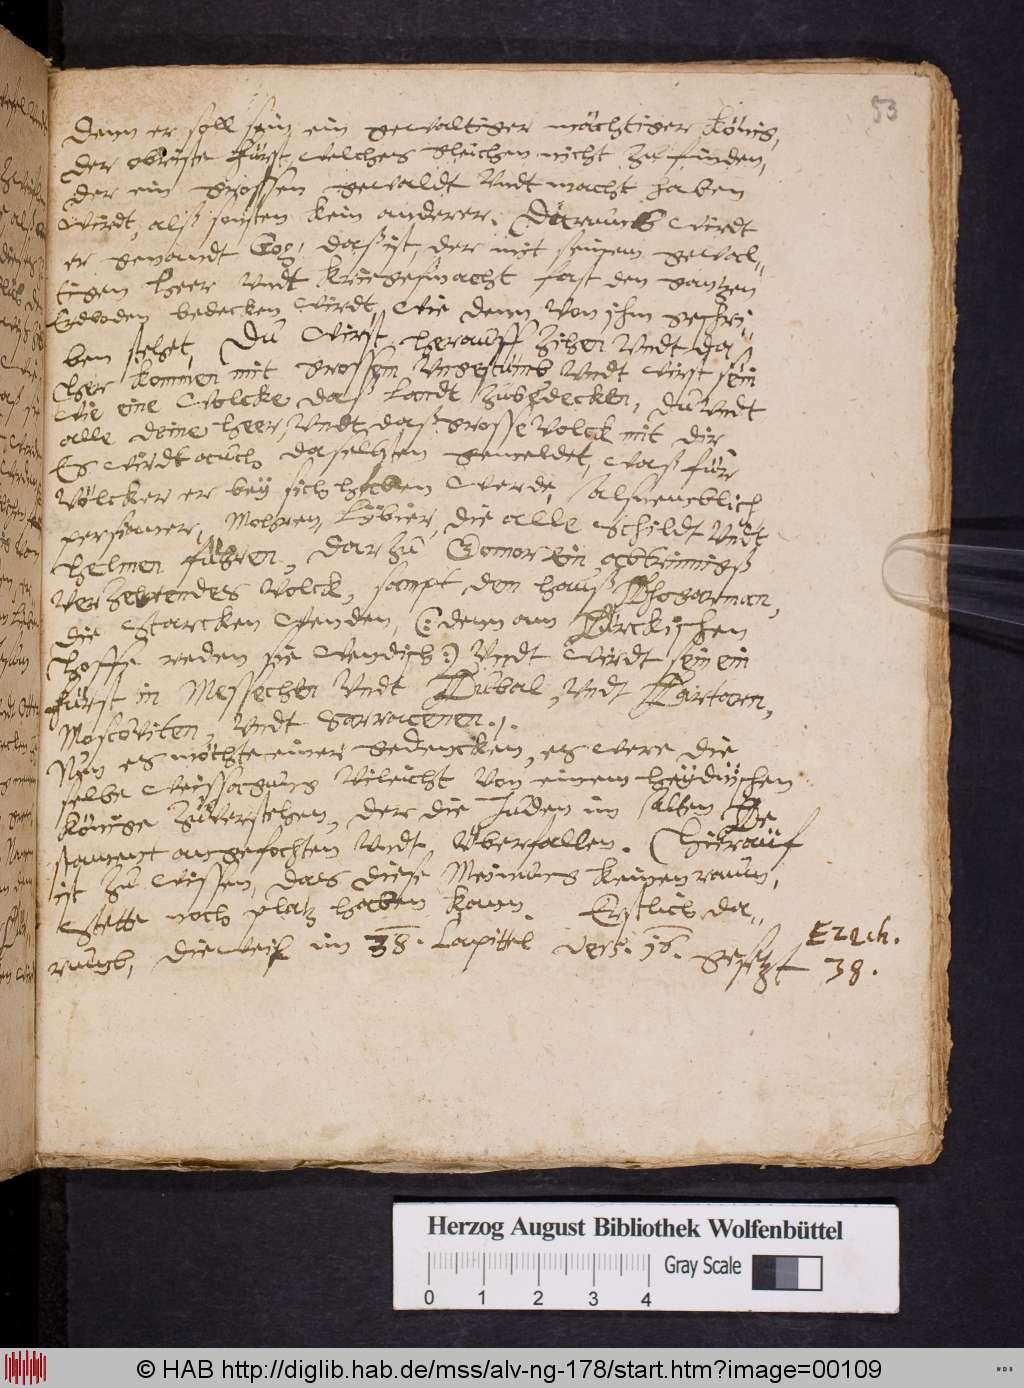 53
Denn er soll sein ein gewaltiger mächtiger König,
der obriste Fürst, welches gleichen nicht zu finden,
der ein grossen gewaldt Vndt macht haben
wirdt, alß sonsten kein anderer. Darumb wirdt
er genandt Gog, daß ist, der mit seinem gewal-
tigen heer Vndt kriegeßmacht fast den gantzen
Erdboden bedecken wirdt, wie denn Von ihm geschri-
ben stehet, Du wirst herauff zihen Vndt da
her kommen mit grossem Vngestümb Vndt wirst sein
wie eine wolcke daß landt zubedecken, du Vndt
alle deine heer, Vndt daß grosse Volck mit dir
Es wirdt auch daselbsten gemeldet, waß für
Völcker er bey sich haben werde, alß nemblich
persianer, Mohren, Lybier, die alle schildt Vndt
helmen führen, darzu Gomor ein
Verzehrendes Volck, sampt dem hauß Thogarman,
die starcken wenden, (: denn am Türckischen
hoffe reden sie wendisch :) Vndt wirdt sein ein
Fürst in Messechen Vndt Tubal, Vndt Tartarn,
Moscoviten, Vndt Sarracenen.
Nun es möchte einer gedencken, es were die
selbe weissagung Vileicht Von einem heydnischen
Könige zuverstehen, der die Juden im alten Te
stament angefochten Vndt Vberfallen. Hierauf
ist zu wissen, das diese Meinung keinen raum,
stette noch platz haben kann. Erstlich da-
rumb, dieweil im 38. Capittel vers. 16. gesetzt
Ezech.
38.
Herzog August Bibliothek Wolfenbüttel
Gray Scale
0 1 2 3 4
© HAB http://diglib.hab.de/mss/alv-ng-178/start.htm?image=00109